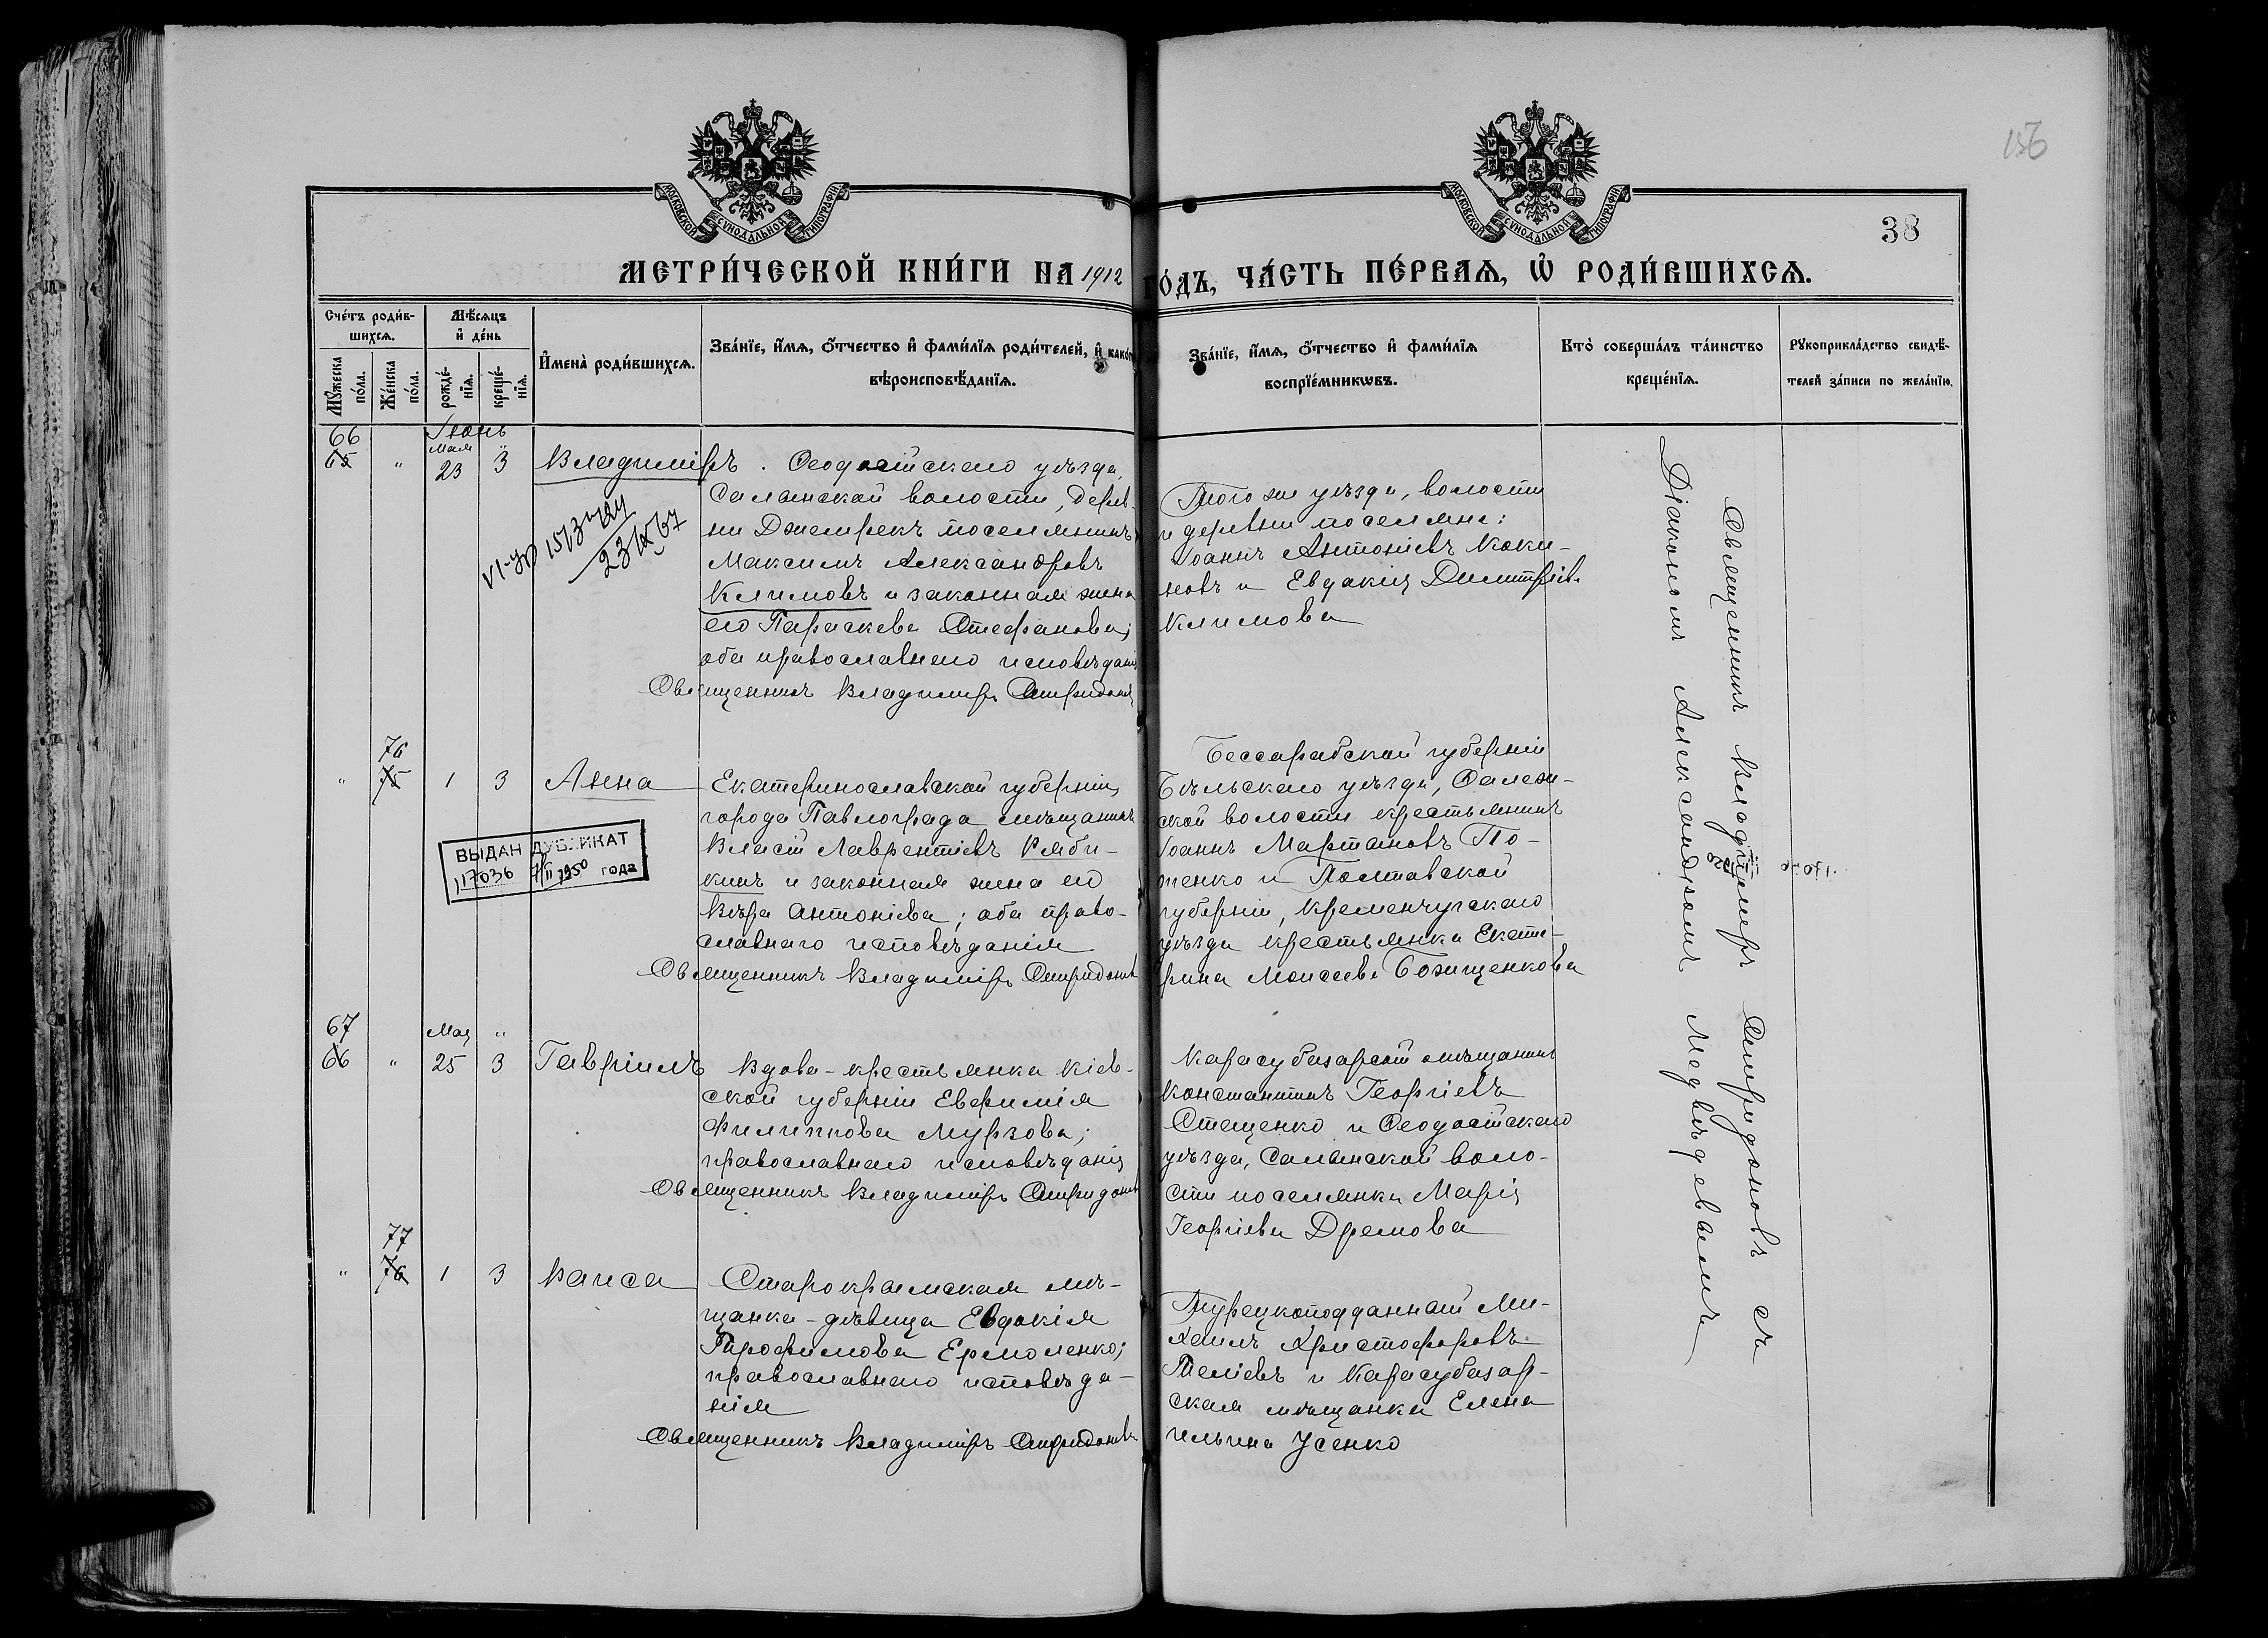 156
38
МОСКОВСКОЙ СѴНОДАЛЬНОЙ ТИПОГРАФІИ
МОСКОВСКОЙ СѴНОДАЛЬНОЙ ТИПОГРАФІИ
МЕТРИ́ЧЕСКОЙ КНИ́ГИ НА 1912 ГО́ДЪ, ЧА́СТЬ ПЕ́РВАѦ, Ѡ҆ РОДИ́ВШИХСѦ.
Сче́тъ роди́вшихсѧ.
Мꙋ́жеска по́ла.
Же́нска по́ла.
Мѣ́сѧцъ и҆ де́нь
рожде́нїѧ.
креще́нїѧ.
И҆мена̀ роди́вшихсѧ.
Зва́нїе, и҆́мѧ, ѻ҆́тчество и҆ фами́лїѧ роди́телей, и҆ како́гѡ
вѣроисповѣ́данїѧ.
Зва́нїе, и҆́мѧ, ѻ҆́тчество и҆ фами́лїѧ
воспрїе́мникѡвъ.
Кто̀ соверша́лъ та́инство
креще́нїѧ.
Рꙋкоприкла́дство свидѣ́-
телей за́писи по жела́нїю.
Іюнь
66
65 " Мая 23 3 Владиміръ. Ѳеодосійскаго уѣзда,
Салынской волости, дерев-
ни Джемрекъ поселянинъ
Максимъ Александровъ
Климовъ и законная жена
его Параскева Стефанова;
оба православнаго исповѣданія
Священникъ Владиміръ Спиридоновъ
23/IX 67
Того же уѣзда, волости
и деревни поселяне:
Іоаннъ Антоніевъ Коки-
новъ и Евдокія Димитріева
Климова
76
" 75 1 3 Анна Екатеринославской губерніи,
города Павлограда мѣщанинъ
Власій Лаврентіевъ Ряби-
кинъ и законная жена его
Вѣра Антоніева; оба право-
славнаго исповѣданія
Священникъ Владиміръ Спиридоновъ
ВЫДАН ДУБЛИКАТ
117036 7/II 1950 года
Бессарабской губерніи
Бѣльскаго уѣзда,
ской волости крестьянинъ
Іоаннъ Мартановъ По-
тенко и Полтавской
губерніи, Кременчугскаго
уѣзда крестьянка Екате-
рина Моисеева Божищенкова
67
66 " Мая 25 3 Гавріилъ Вдова-крестьянка Кіев-
ской губерніи Евфимія
Филиппова Мурзова;
православнаго исповѣданія
Священникъ Владиміръ Спиридоновъ
Карасубазарскій мѣщанинъ
Константинъ Георгіевъ
Стеценко и Ѳеодосійскаго
уѣзда, Салынской воло-
сти поселянка Марія
Георгіева Дремова
77
" 76 1 3 Раиса Старокрымская мѣ-
щанка-дѣвица Евдокія
Трофимова Ермоленко;
православнаго исповѣда-
нія
Священникъ Владиміръ Спиридоновъ
Турецкоподданный Ми-
хаилъ Христофоровъ
Теліевъ и Карасубазар-
ская мѣщанка Елена
Ильина Усенко
Священникъ Владиміръ Спиридоновъ съ
Діакономъ Александромъ Медвѣдевымъ